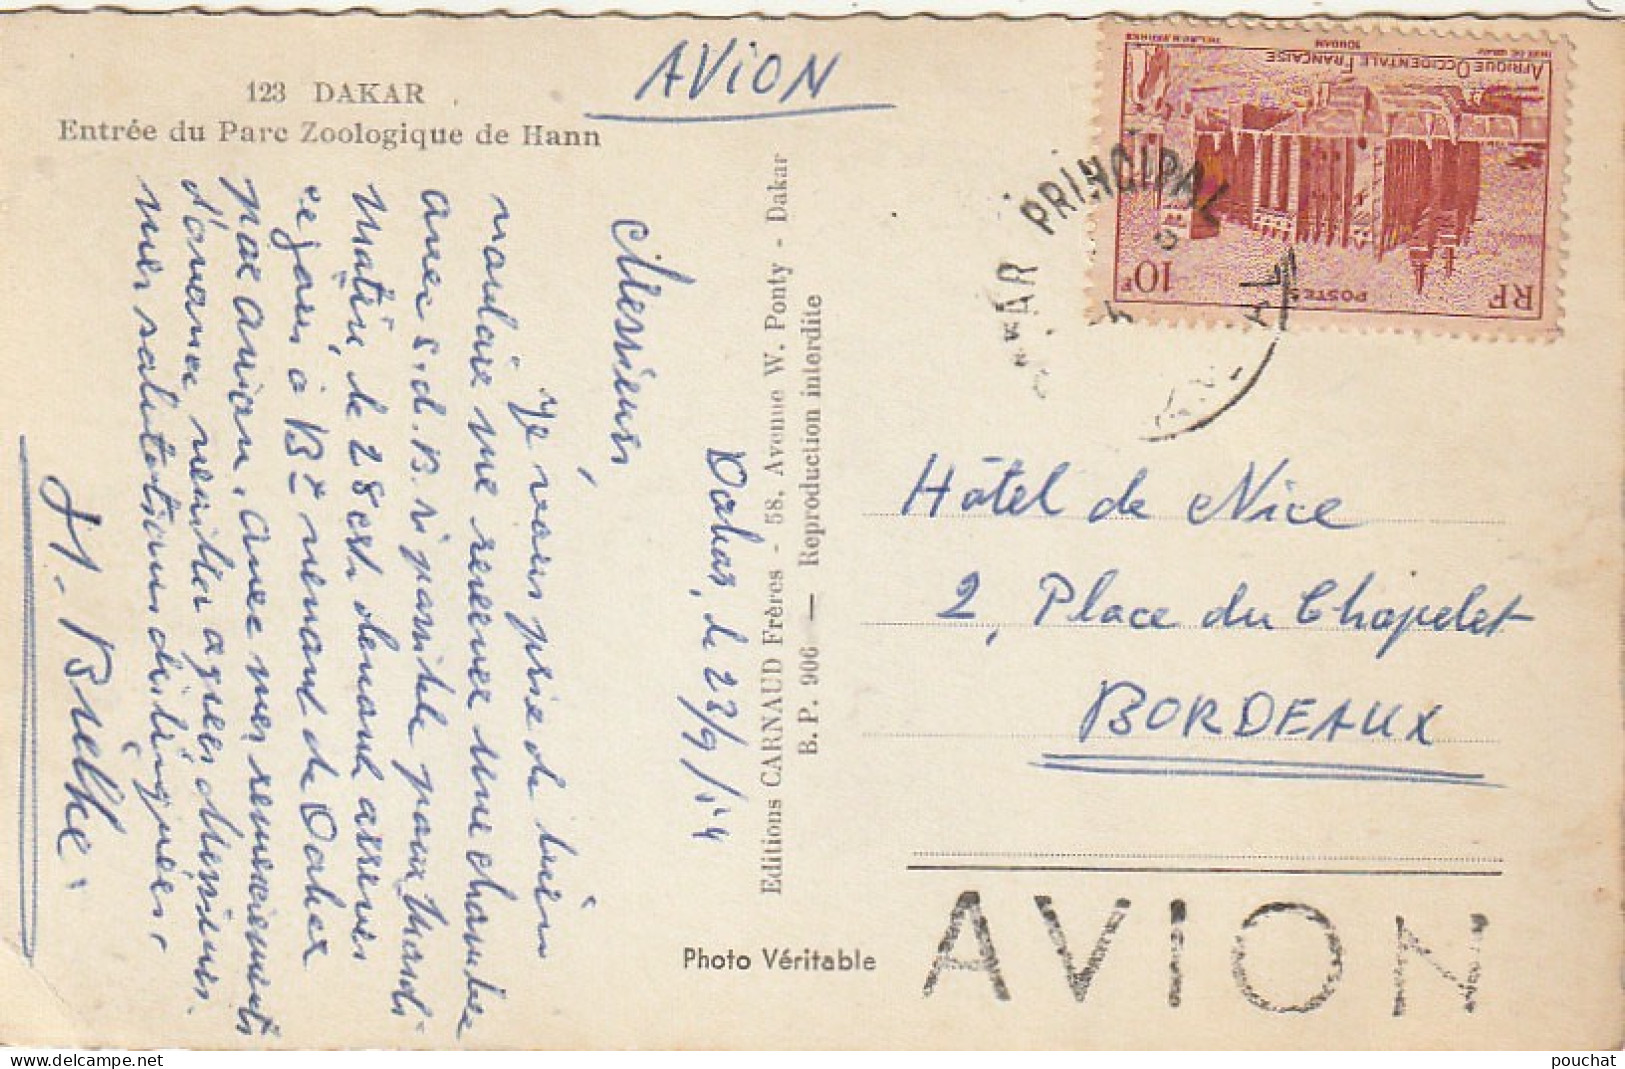 123 DAKAR
Entrée du Parc Zoologique de Hann
AVION
Dakar, le 23/9/54
Messieurs,
Je vous prie de bien
vouloir me réserver une chambre
avec S.d.B. si possible pour Mardi
Matin, le 28 crt. devant arriver
ce jour à Bx venant de Dakar
par avion. Avec mes remerciements
d'avance, veuillez agréer Messieurs
mes salutations distinguées.
Editions CARNAUD Frères - 58, Avenue W. Ponty - Dakar
B. P. 906 — Reproduction interdite
Photo Véritable
RF
POSTES
10F
AFRIQUE OCCIDENTALE FRANÇAISE
SOUDAN
PRINCIPAL
Hôtel de Nice
2, Place du Chapelet
BORDEAUX
AVION
pouchat
www.delcampe.net